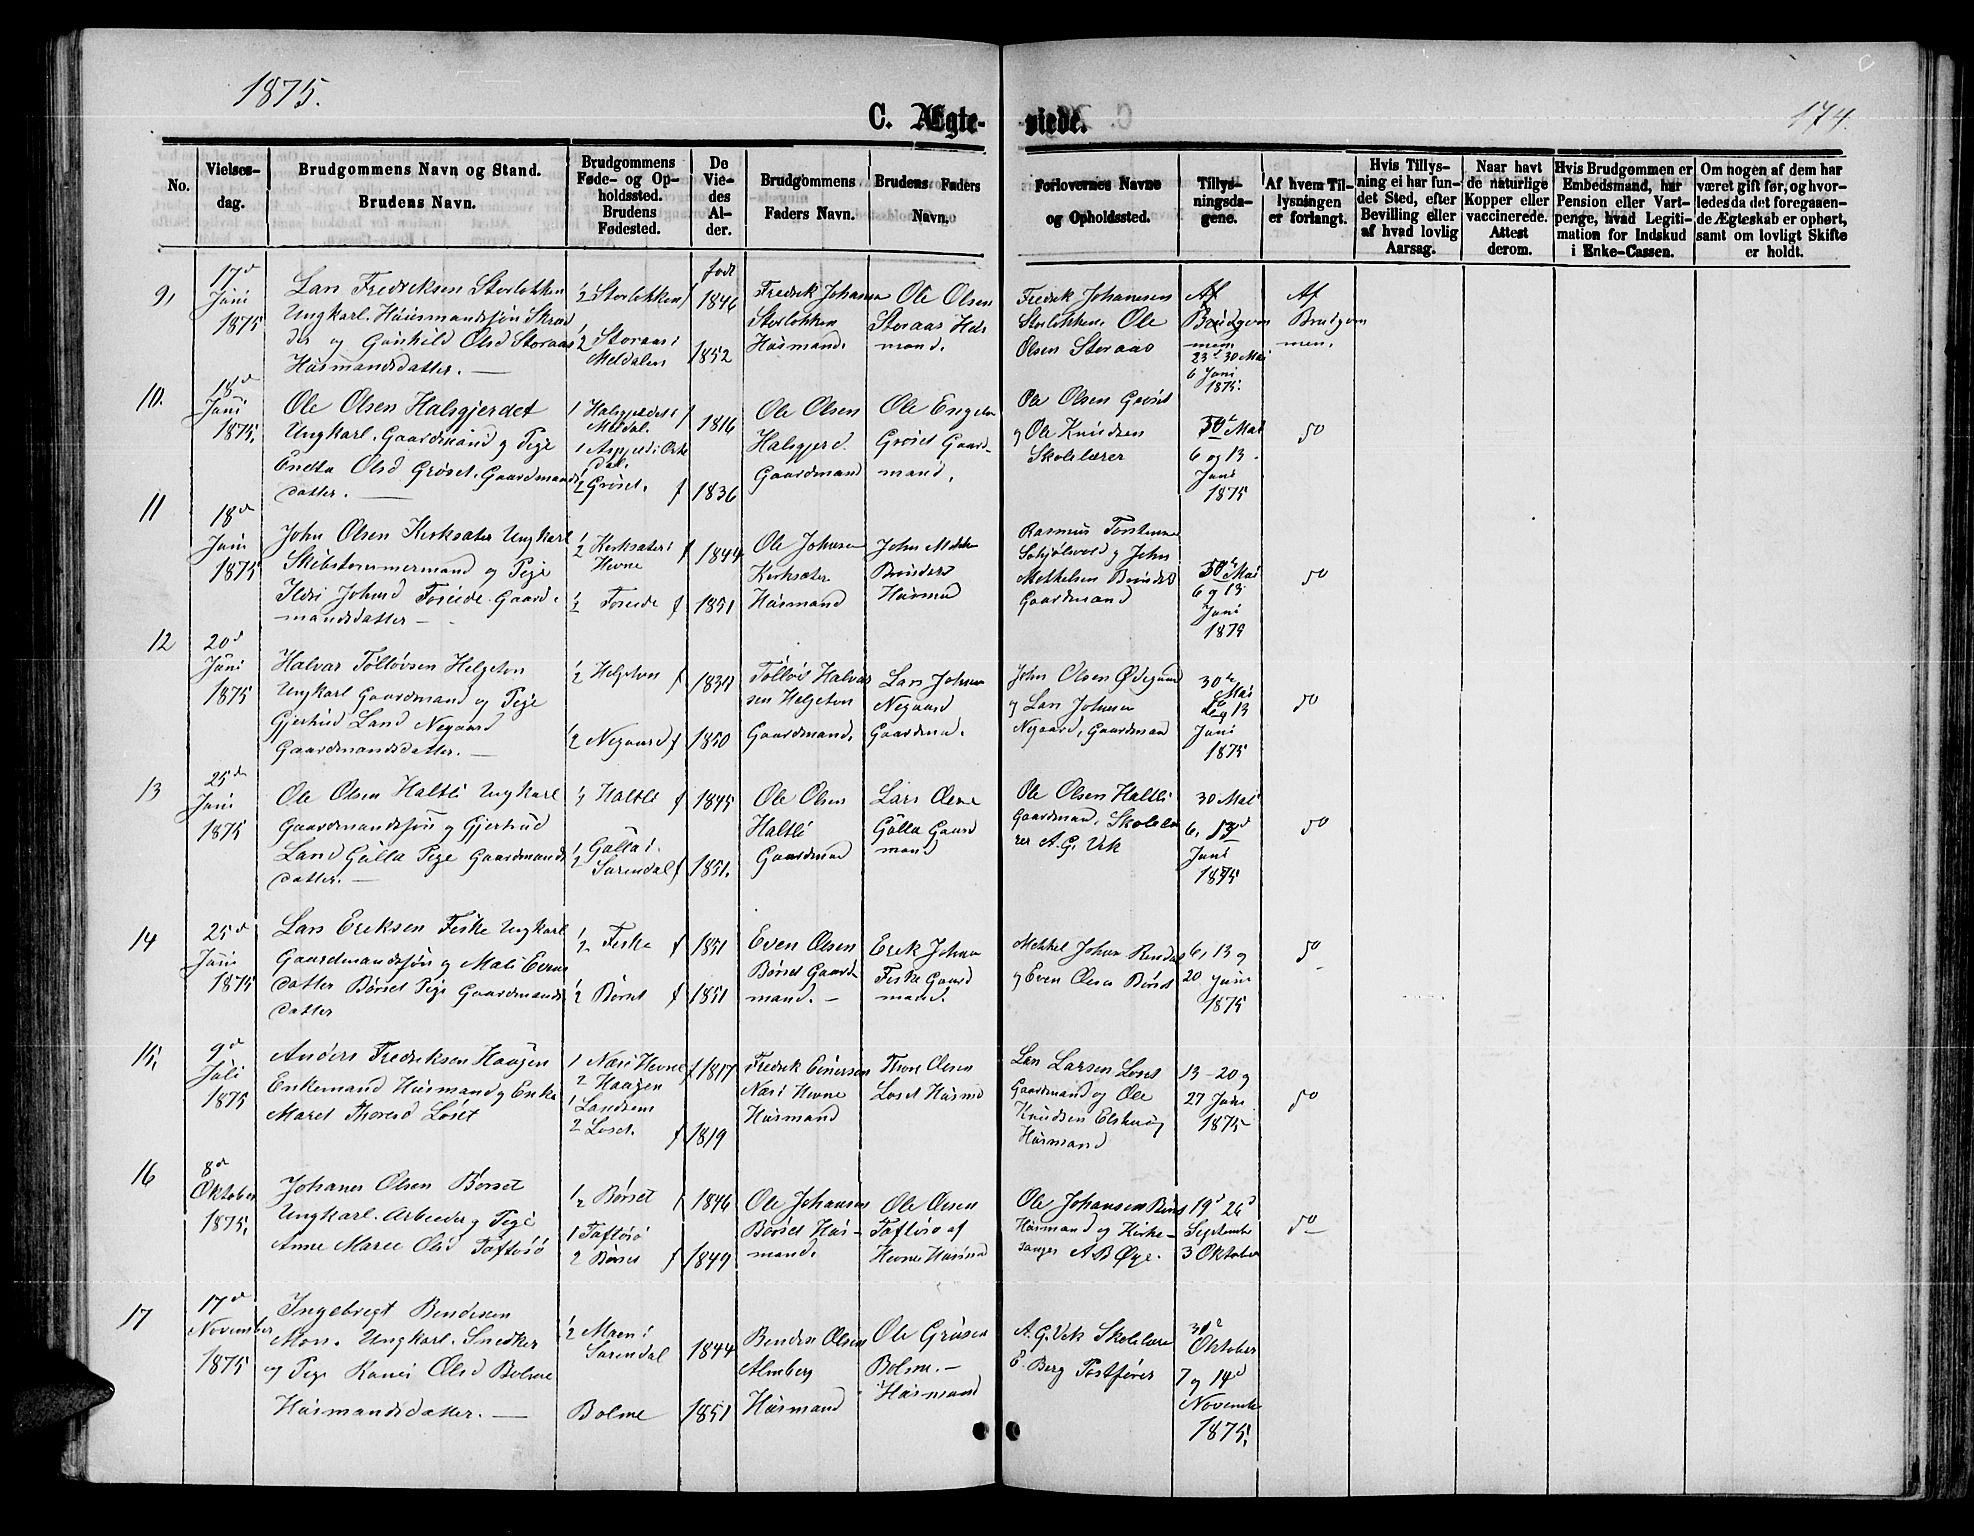 1875.
174.
C. Ægteviede.
No.
Vielses-
dag.
Brudgommens Navn og Stand.
Brudens Navn.
Brudgommens
Føde- og Op-
holdssted.
Brudens
Fødested.
De
Vie-
des
Al-
der.
Brudgommens
Faders Navn.
Brudens Faders
Navn.
Forlovernes Navne
og Opholdssted.
Tillys-
ningsda-
gene.
Af hvem Til-
lysningen
er forlangt.
Hvis Tillys-
ning ei har fun-
det Sted, efter
Bevilling eller
af hvad lovlig
Aarsag.
Naar havt
de naturlige
Kopper eller
vaccinerede.
Attest
derom.
Hvis Brudgommen er
Embedsmand, har
Pension eller Vart-
penge, hvad Legiti-
mation for Indskud
i Enke-Cassen.
Om nogen af dem har
været gift før, og hvor-
ledes da det foregaaen-
de Ægteskab er ophørt,
samt om lovligt Skifte
er holdt.
9,
17d
Juni
1875
Lars Fredriksen Storløkken
Ungkarl. Huusmandssøn
og Gunhild Olsd Storaas
Husmandsdatter. —
1/2 Storløkken
1/2 Storaas i
Meldalen
født
1846
1852
Fredrik Johansen
Storløkken
Husmand.
Ole Olsen
Storaas Hus-
mand.
Fredrik Johansen
Storløkken. Ole
Olsen Storaas
Af
Brudgom
men
23d 30 Mai
6 Juni
1875.
Af
Brudgom
men.
10.
18d
Juni
1875,
Ole Olsen Halsgjerdet
Ungkarl. Gaardmand og Pige
Olsd Grøset. Gaardmands
datter. —
1 Halsgjerdet i
Meldal.
1 i Orke
dal.
2 Grøset. f
1816
1836
Ole Olsen
Halsgjerd
Gaardmand
Ole
Grøset Gaard-
mand.
Ole Olsen Grøset
og Ole Knudsen
Skolelærer
30te Mai
6 og 13
Juni
1875
do
11
18d
Juni
1875
John Olsen Kirksæter Ungkarl
Skibstømmermand og Pige
Johnsd Foseide. Gaard-
mandsdatter —
1/2 Kirksæter i
Hevne
1/2 Foseide f
1844
1851
Ole Johnsen
Kirksæter
Husmand
John
Husmand
Rasmus
og John
Gaardmand
30te Mai
6 og 13
Juni
1875
do
12
20d
Juni
1875
Halvar Tølløvsen Helgeton
Ungkarl Gaardmand og Pige
Gjertrud Larsd Negaard
Gaardmandsdatter. —
1/2 Helgeton f
1/2 Negaard f
1850
Halvar
sen Helgeton
Gaardmand.
Lars Johnsen
Negaard
Gaardmd.
John Olsen Ødegaard
og Lars Johnsen
Negaard, Gaardmand
30te
Mai
6 og 13
Juni
1875
do
13
25de
Juni
1875
Ole Olsen Haltli Ungkarl
Gaardmandssøn og Gjertrud
Larsd Gulla Pige Gaardmands
datter. —
1/2 Haltli f
1/2 Gulla i
Surendal f
1845
1851.
Ole Olsen
Haltli
Gaardmd
Lars
Gulla Gaard
mand
Ole Olsen Haltli
Gaardmand. Skolelæ
rer A. G. Vik
30 Mai
6, 13d
Juni
1875
do
14
25d
Juni
1875
Lars Eriksen Fiske Ungkarl
Gaardmandssøn og Mali Evens
datter Børset Pige Gaardmands
datter
1/2 Fiske f
1/2 Børset f
1851
1851
Even Olsen
Børset Gaard
mand. —
Erik Johnsen
Fiske Gaard
mand.
Mekkel Johnsen
og Even Olsen Børset
6, 13 og
20 Juni
1875
do
15,
9d
Juli
1875
Anders Fredriksen Haugen
Enkemand Husmand og Enke
Maret Thoresd Løset
1 Næs i Hevne
2 Haugen
1
2 Løset. f
f 1817
1819
Fredrik
Næs i Hevne
Husmand
Thore Olsen
Løset Husmd
Lars Larsen Løset
Gaardmand og Ole
Knudsen
Husmand
13–20 og
27 Juni
1875
do
16
8d
Oktober
1875,
Johanes Olsen Børset
Ungkarl. Arbeider og Pige
Anne Marie Olsd Taftøsø
1/2 Børset f
1 Taftøsø
2 Børset f
1846
1849
Ole Johansen
Børset Hus-
mand.
Ole Olsen
Taftøsø af
Hevne Husmd
Ole Johansen Børset
Husmand og Kirke-
sanger A B Øye.
19d 26d
September
3 Oktober
do
17
17d
November
1875
Ingebregt Bendixsen
Moen. Ungkarl. Snedker
og Pige Kari Olsd Bolme
Husmandsdatter. —
1/2 Moen i
Surendal
Bolme
1844
1851
Bendix Olsen
Almberg
Husmand
Ole
Bolme. —
Husmand
A. G. Vik Skolelærer
E. Berg Postfører
31d
Oktober
7 og 14d
November
1875,